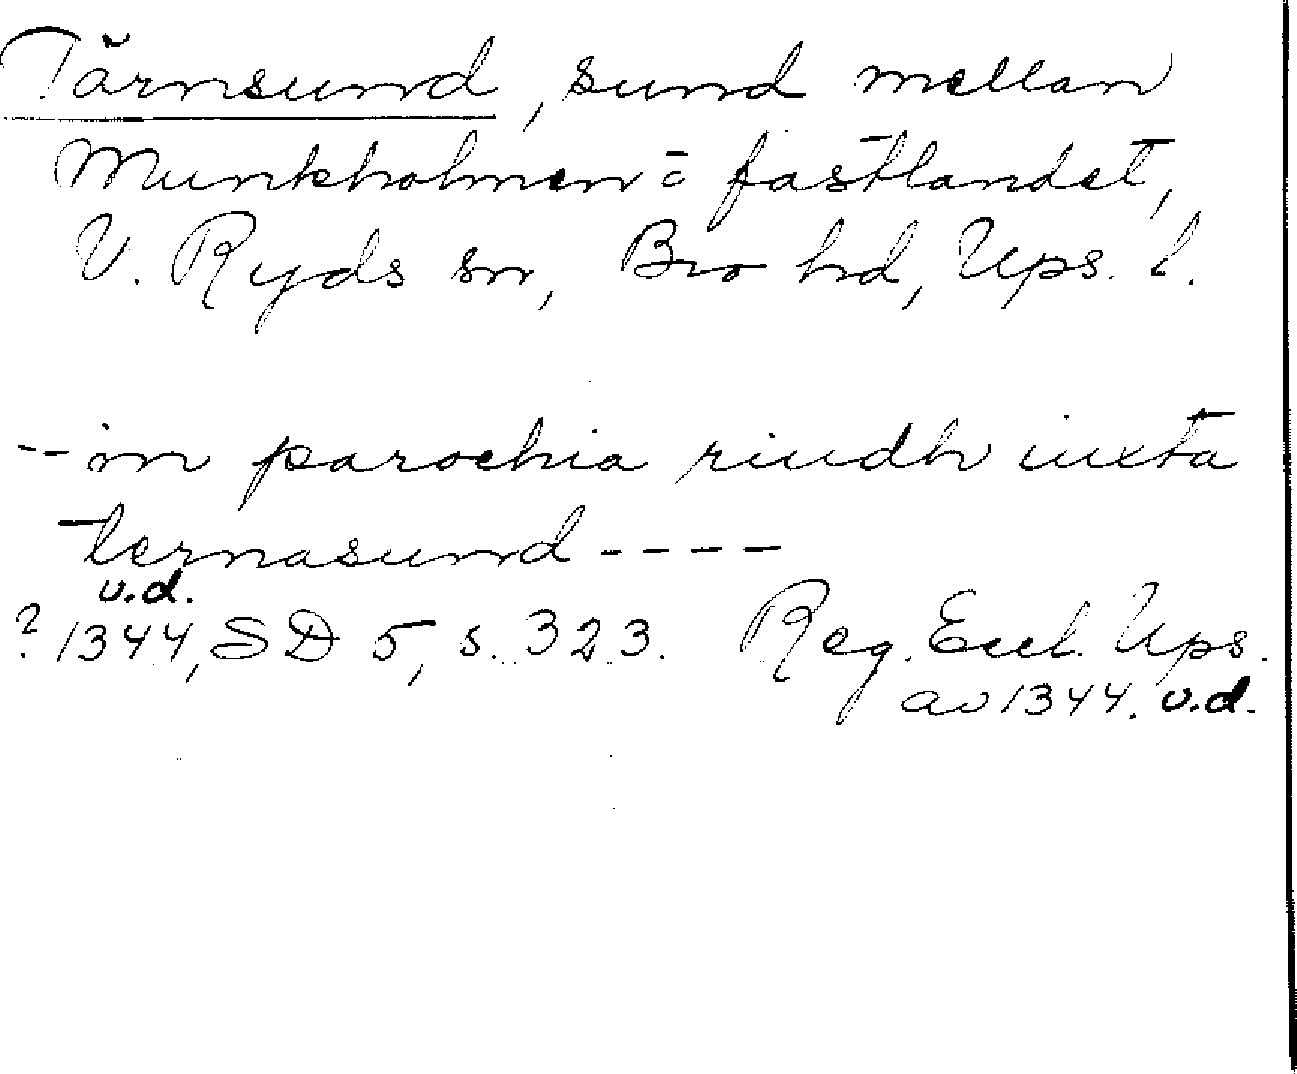 Tärnsund, sund mellan
Munkholmen o fastlandet,
V. Ryds sn, Bro hd, Ups. l.
-- in parochia riudh iuxta
ternasund ----
u.d.
? 1344, SD 5, s. 323. Reg. Eccl. Ups.
av 1344. u.d.